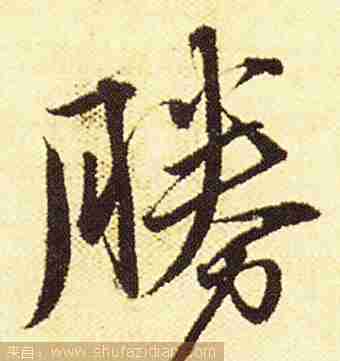 勝
来自：www.shufazidian.com